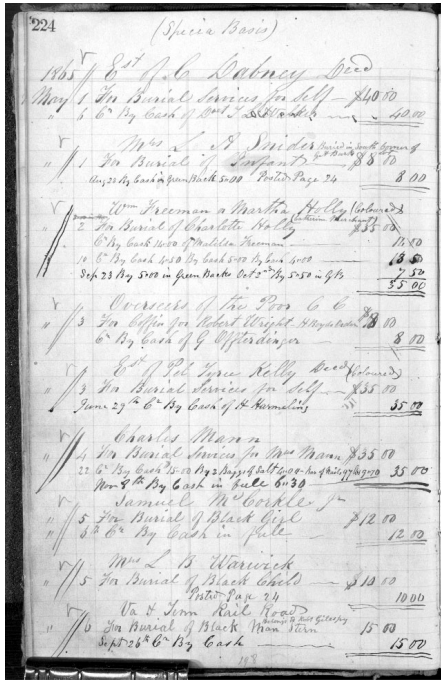 224
(Specia Basis)
1865 Est of C Dabney Decd
May 1 For Burial Services for Self $40 00
" 6 Cr By Cash of 40.00
Mrs L A Snider Buried in South Corner of
" 1 For Burial of Infant $8 00
Aug 22 By Cash in Green Back 5.00 Posted Page 24 8 00
Wm Freeman & Martha Holly (Coloured)
2 For Burial of Charlotte Holly $35 00
Cr By Cash 14.00 of Matilda Freeman 14.00
10 Cr By Cash 4.50 By Cash 5.00 By Cash 4.00 13 50
Sep 23 By 5.00 in Green Backs Oct 2nd By 5.50 in GB 7 50
35 00
Overseers of the Poor C C
" 3 For Coffin for Robert Wright $8 00
Cr By Cash of G Offterdinger 8 00
Est of Pet Tyree Kelly Decd (Coloured)
" 3 For Burial Services for Self $35 00
June 29th Cr By Cash of H Harmeling 35 00
Charles Mann
" 4 For Burial Services for Mrs Mann $35 00
22 Cr By Cash 15.00 By 2 Baggs of Salt 4.00 35 00
Nov 8th By Cash in full 6.30
Samuel McCorkle Jr
" 5 For Burial of Black Girl $12 00
" 5th Cr By Cash in full 12 00
Mrs L B Warwick
" 5 For Burial of Black Child $10 00
Posted Page 24 10 00
Va & Tenn Rail Road
" 6 For Burial of Black Man Belongs to Gilespy 15 00
Sept 26th Cr By Cash 15 00